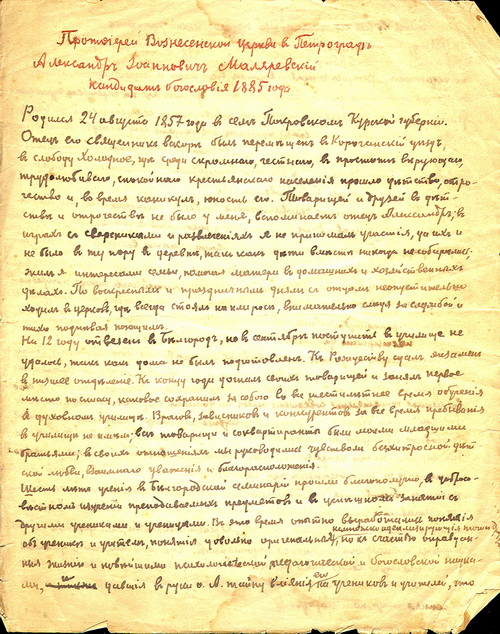 Протоіерей Вознесенской церкви в Петрограде
Александр Іоаннович Маляревскій
кандидат богословія 1885 года
Родился 24 августа 1857 года в селе Покровском Курской губерніи.
Отец его священник вскоре был перемещен в Корочанский уезд,
в слободу Холодное, где среди скромнаго, честнаго, в простоте верующаго,
трудолюбиваго, спокойнаго крестьянскаго населенія прошло детство, отро-
чество и, во время каникул, юность его. Товарищей и друзей в дет-
стве и отрочестве не было у меня, вспоминает отец Александр; в
играх со сверсниками и развлеченіях я не принимал участія, да их и
не было в ту пору в деревне, так как дети вместе никогда не собирались.
Жил я интересами семьи, помогая матери в домашних и хозяйственных
делах. По воскресным и праздничным дням с отцом неопустительно
ходил в церковь, где всегда стоял на клиросе, внимательно следя за службой и
тихо подпевая поющим.
На 12 году отвезен в Белгород, но в сентябре поступить в училище не
удалось, так как дома не был подготовлен. К Рождеству сдал экзамен
в низшее отделеніе. К концу года догнал своих товарищей и занял первое
место по списку, каковое сохранил за собою во все шестилетнее время обученія
в духовном училище. Врагов, завистников и конкурентов за все время пребыванія
в училище не имел: все товарищи и соквартиранты были моими младшими
братьями; в своих отношеніях мы руководились чувством безхитростной дет-
ской любви, взаимнаго уваженія и благорасположенія.
Шесть лет ученія в Белгородской семинаріи прошли благополучно, в добро-
совестном изученіи преподаваемых предметов и в успешном занятіи с
другими учениками и ученицами. Во это время
об ученике и учителе, понятія довольно оригинальныя, но к счастью оправдан-
ныя жизнью и новейшими психологической педагогической и богословской наука-
ми, давшія в руки о. А. тайну вліянія его на учеников и учителей, что